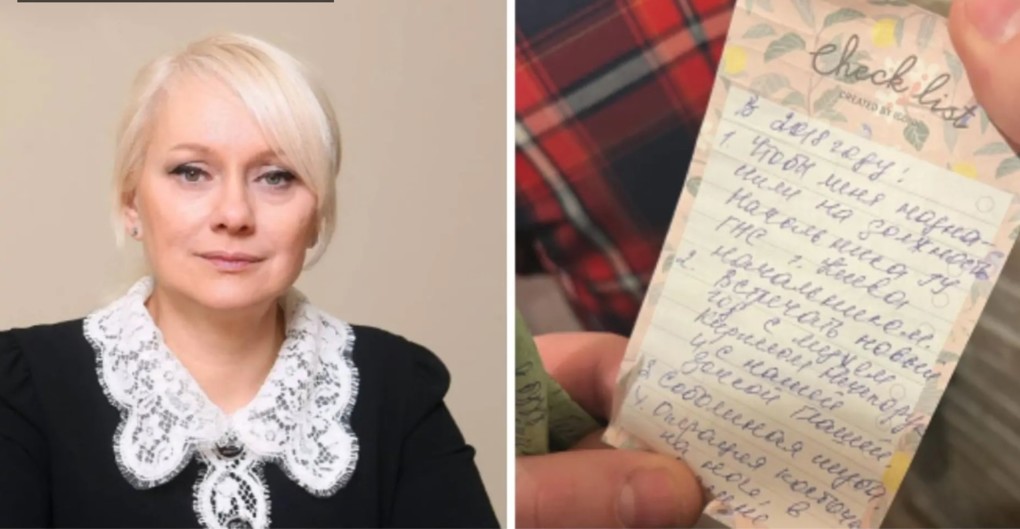 Check list
CREATED BY
В 2018 году:
1. Чтобы меня назна-
чили на должность
начальника ГУ
ГНС г. Киева
начальником
2. Встречать новый
год с мужем
Кириллом
и с нашей
дочкой
3. Соболиная шуба
4. Операция косточки
на ноге, в